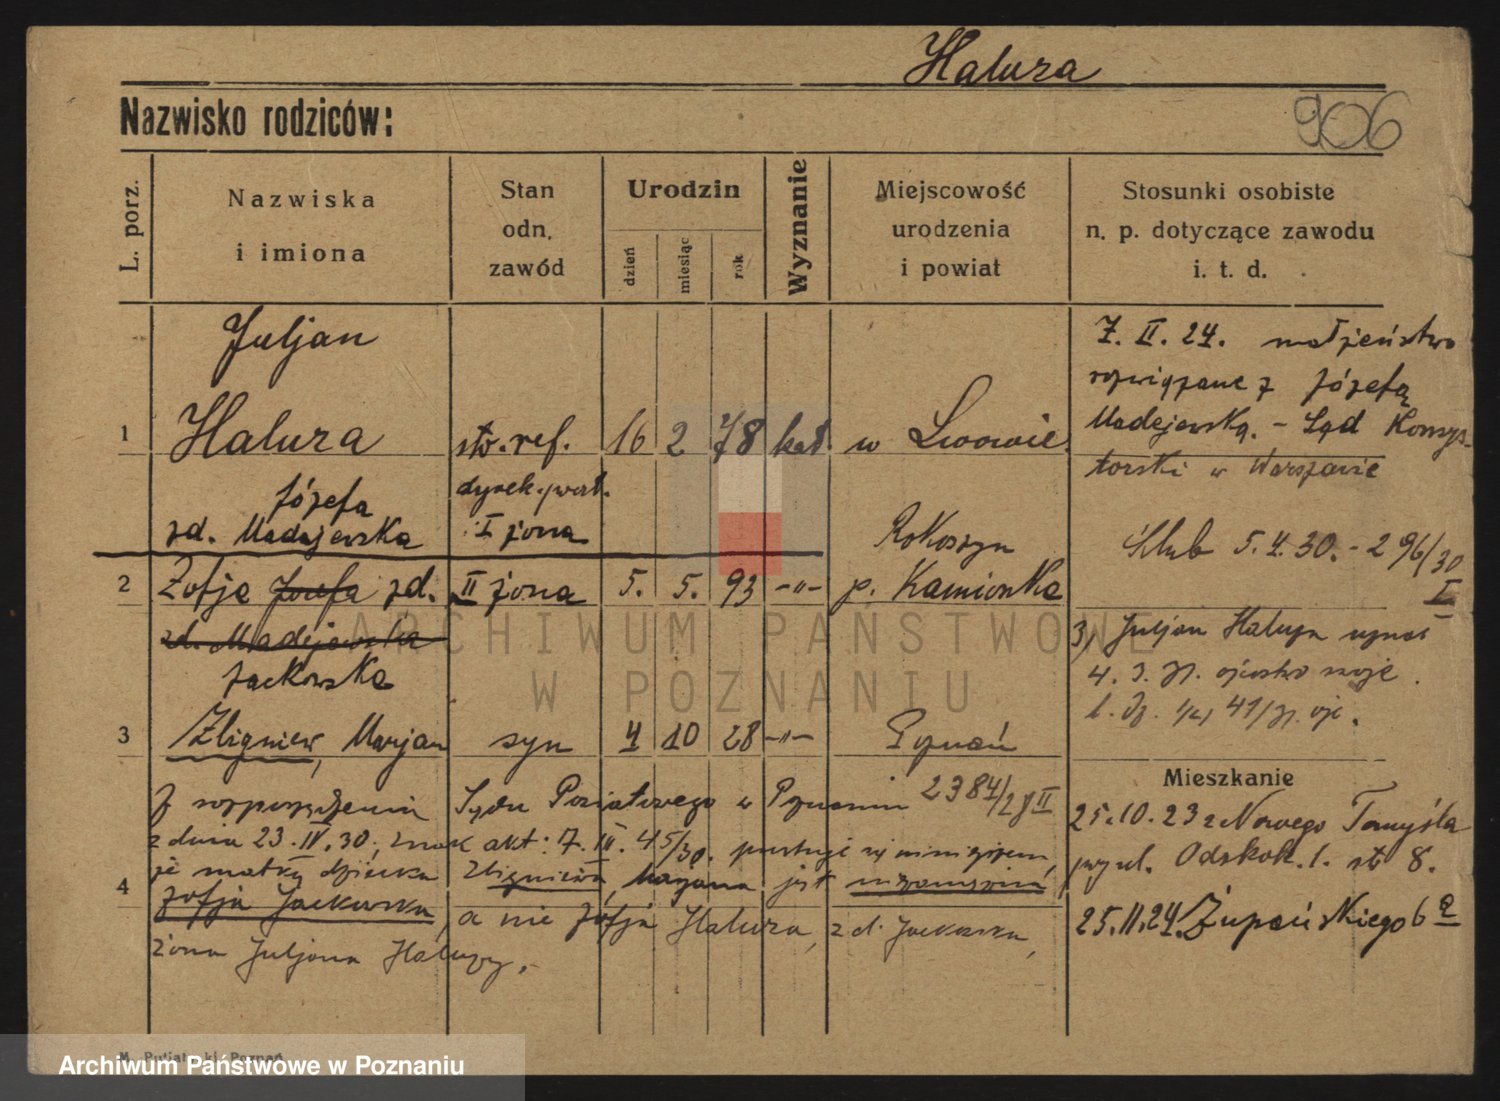 Haluza
Nazwisko rodziców:
906
L. porz.
Nazwiska
i imiona
Stan
odn.
zawód
Urodzin
dzień
miesiąc
rok
Wyznanie
Miejscowość
urodzenia
i powiat
Stosunki osobiste
n. p. dotyczące zawodu
i. t. d.
Juljan
1 Haluza st. ref. 16 2 78 kat. w Lwowie
dyrek. poczt.
Józefa
zd. Madejewska I żona
7. II. 24. małżeństwo
rozwiązane z Józefą
Madejewską. - Sąd Konsys-
torski w Warszawie
2 Zofja Józefa zd. II żona 5. 5. 93 -"- Rokoszyn
p. Kamionka
zd. Madejewska
Jackowska
Ślub 5.4.30. - 296/30
I
3 Zbigniew, Marjan syn 4 10 28 -"- Poznań
3) Juljan Haluza uznał
ojcostwo swoje
Mieszkanie
Z rozporządzenia Sądu Powiatowego w Poznaniu 2384/28 II
z dnia 23. IV. 30, znak akt: 7. III. 45/30. prostuje się niniejszem,
że matką dziecka Zbigniewa, Marjana jest niezamężna
4 Zofja Jackowska, a nie Zofja Haluza, z d. Jackowska,
żona Juljana Haluzy.
25.10.23 z Nowego Tomyśla
przy ul. Odskok. 1. st 8.
25.11.24. Żupańskiego 6
ARCHIWUM PAŃSTWOWE
W POZNANIU
Archiwum Państwowe w Poznaniu